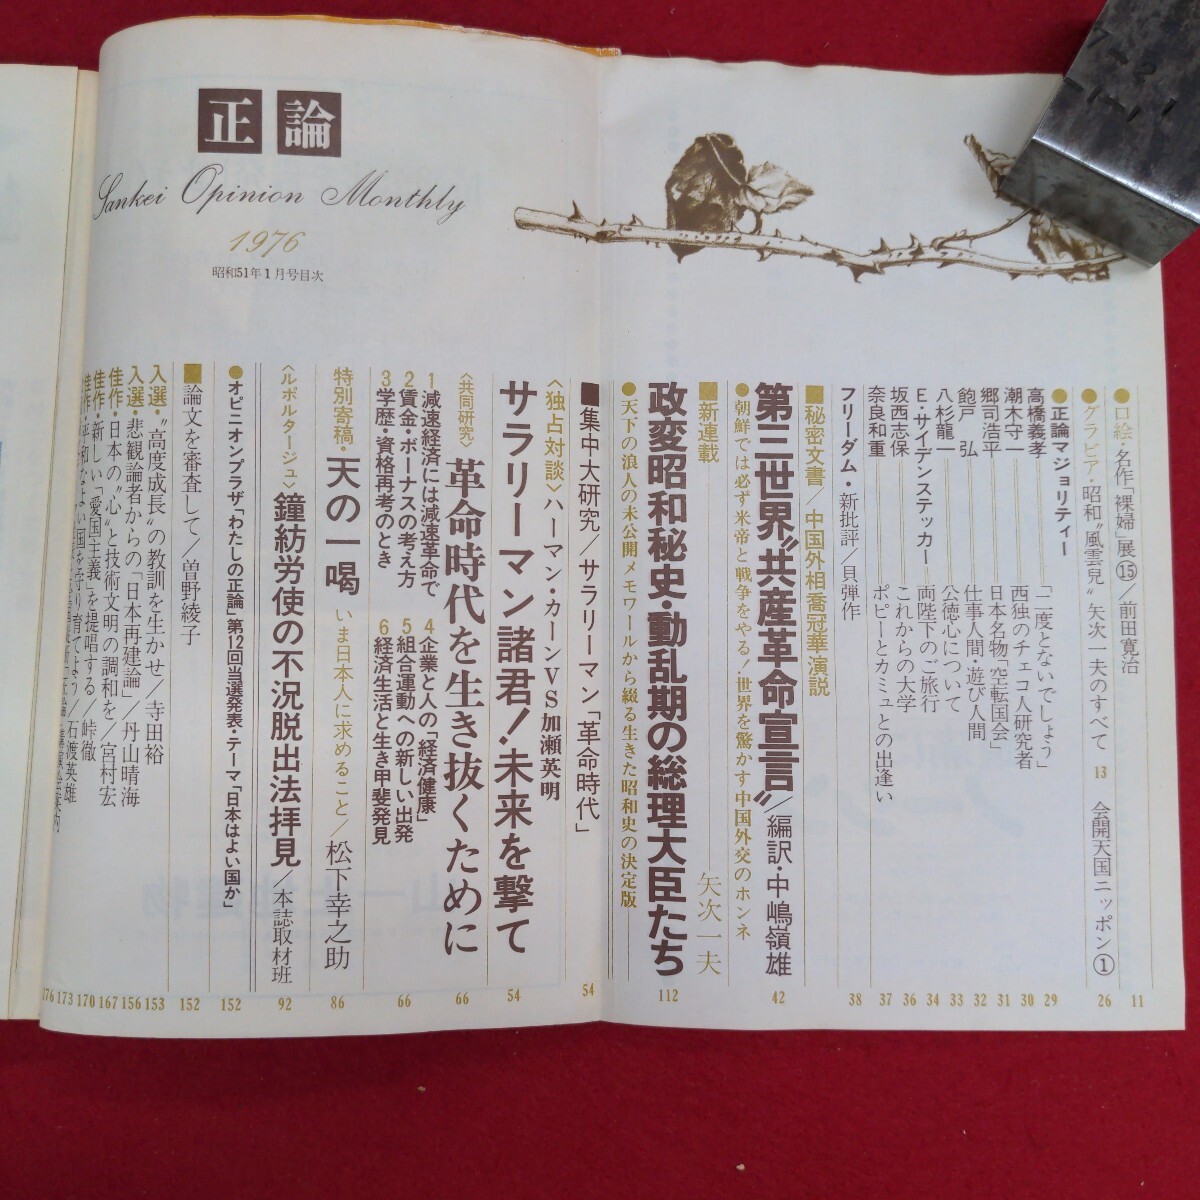 正論
Sankei Opinion Monthly
1976
昭和51年1月号目次
●口絵・名作「裸婦」展⑮／前田寛治 11
●グラビア・昭和〝風雲児〟矢次一夫のすべて 13 会開天国ニッポン① 26
●正論マジョリティー
高橋義孝 「二度とないでしょう」 29
潮木守一 西独のチェコ人研究者 30
郷司浩平 日本名物「空転国会」 31
飽戸 弘 仕事人間・遊び人間 32
八杉龍一 公徳心について 33
E・サイデンステッカー 両陛下のご旅行 34
坂西志保 これからの大学 36
奈良和重 ポピーとカミュとの出逢い 37
フリーダム・新批評／貝弾作 38
■秘密文書／中国外相喬冠華演説
第三世界〝共産革命宣言〟／編訳・中嶋嶺雄 42
●朝鮮では必ず米帝と戦争をやる！・世界を驚かす中国外交のホンネ
■新連載 矢次一夫
政変昭和秘史・動乱期の総理大臣たち 112
●天下の浪人の未公開メモワールから綴る生きた昭和史の決定版
■集中大研究／サラリーマン「革命時代」 54
〈独占対談〉ハーマン・カーンVS加瀬英明
サラリーマン諸君！・未来を撃て 54
〈共同研究〉革命時代を生き抜くために 66
1 減速経済には減速革命で
2 賃金・ボーナスの考え方
3 学歴・資格再考のとき
4 企業と人の「経済健康」
5 組合運動への新しい出発
6 経済生活と生き甲斐発見
66
特別寄稿・天の一喝 いま日本人に求めること／松下幸之助 86
〈ルポルタージュ〉鐘紡労使の不況脱出法拝見／本誌取材班 92
●オピニオンプラザ「わたしの正論」第12回当選発表・テーマ「日本はよい国か」 152
■論文を審査して／曽野綾子 152
入選・〝高度成長〟の教訓を生かせ／寺田裕 153
入選・悲観論者からの「日本再建論」／丹山晴海 156
佳作・日本の〝心〟と技術文明の調和を／宮村宏 167
佳作・新しい「愛国主義」を提唱する／峠徹 170
佳作・平和なよい国を守り育てよう／石渡英雄 173
176